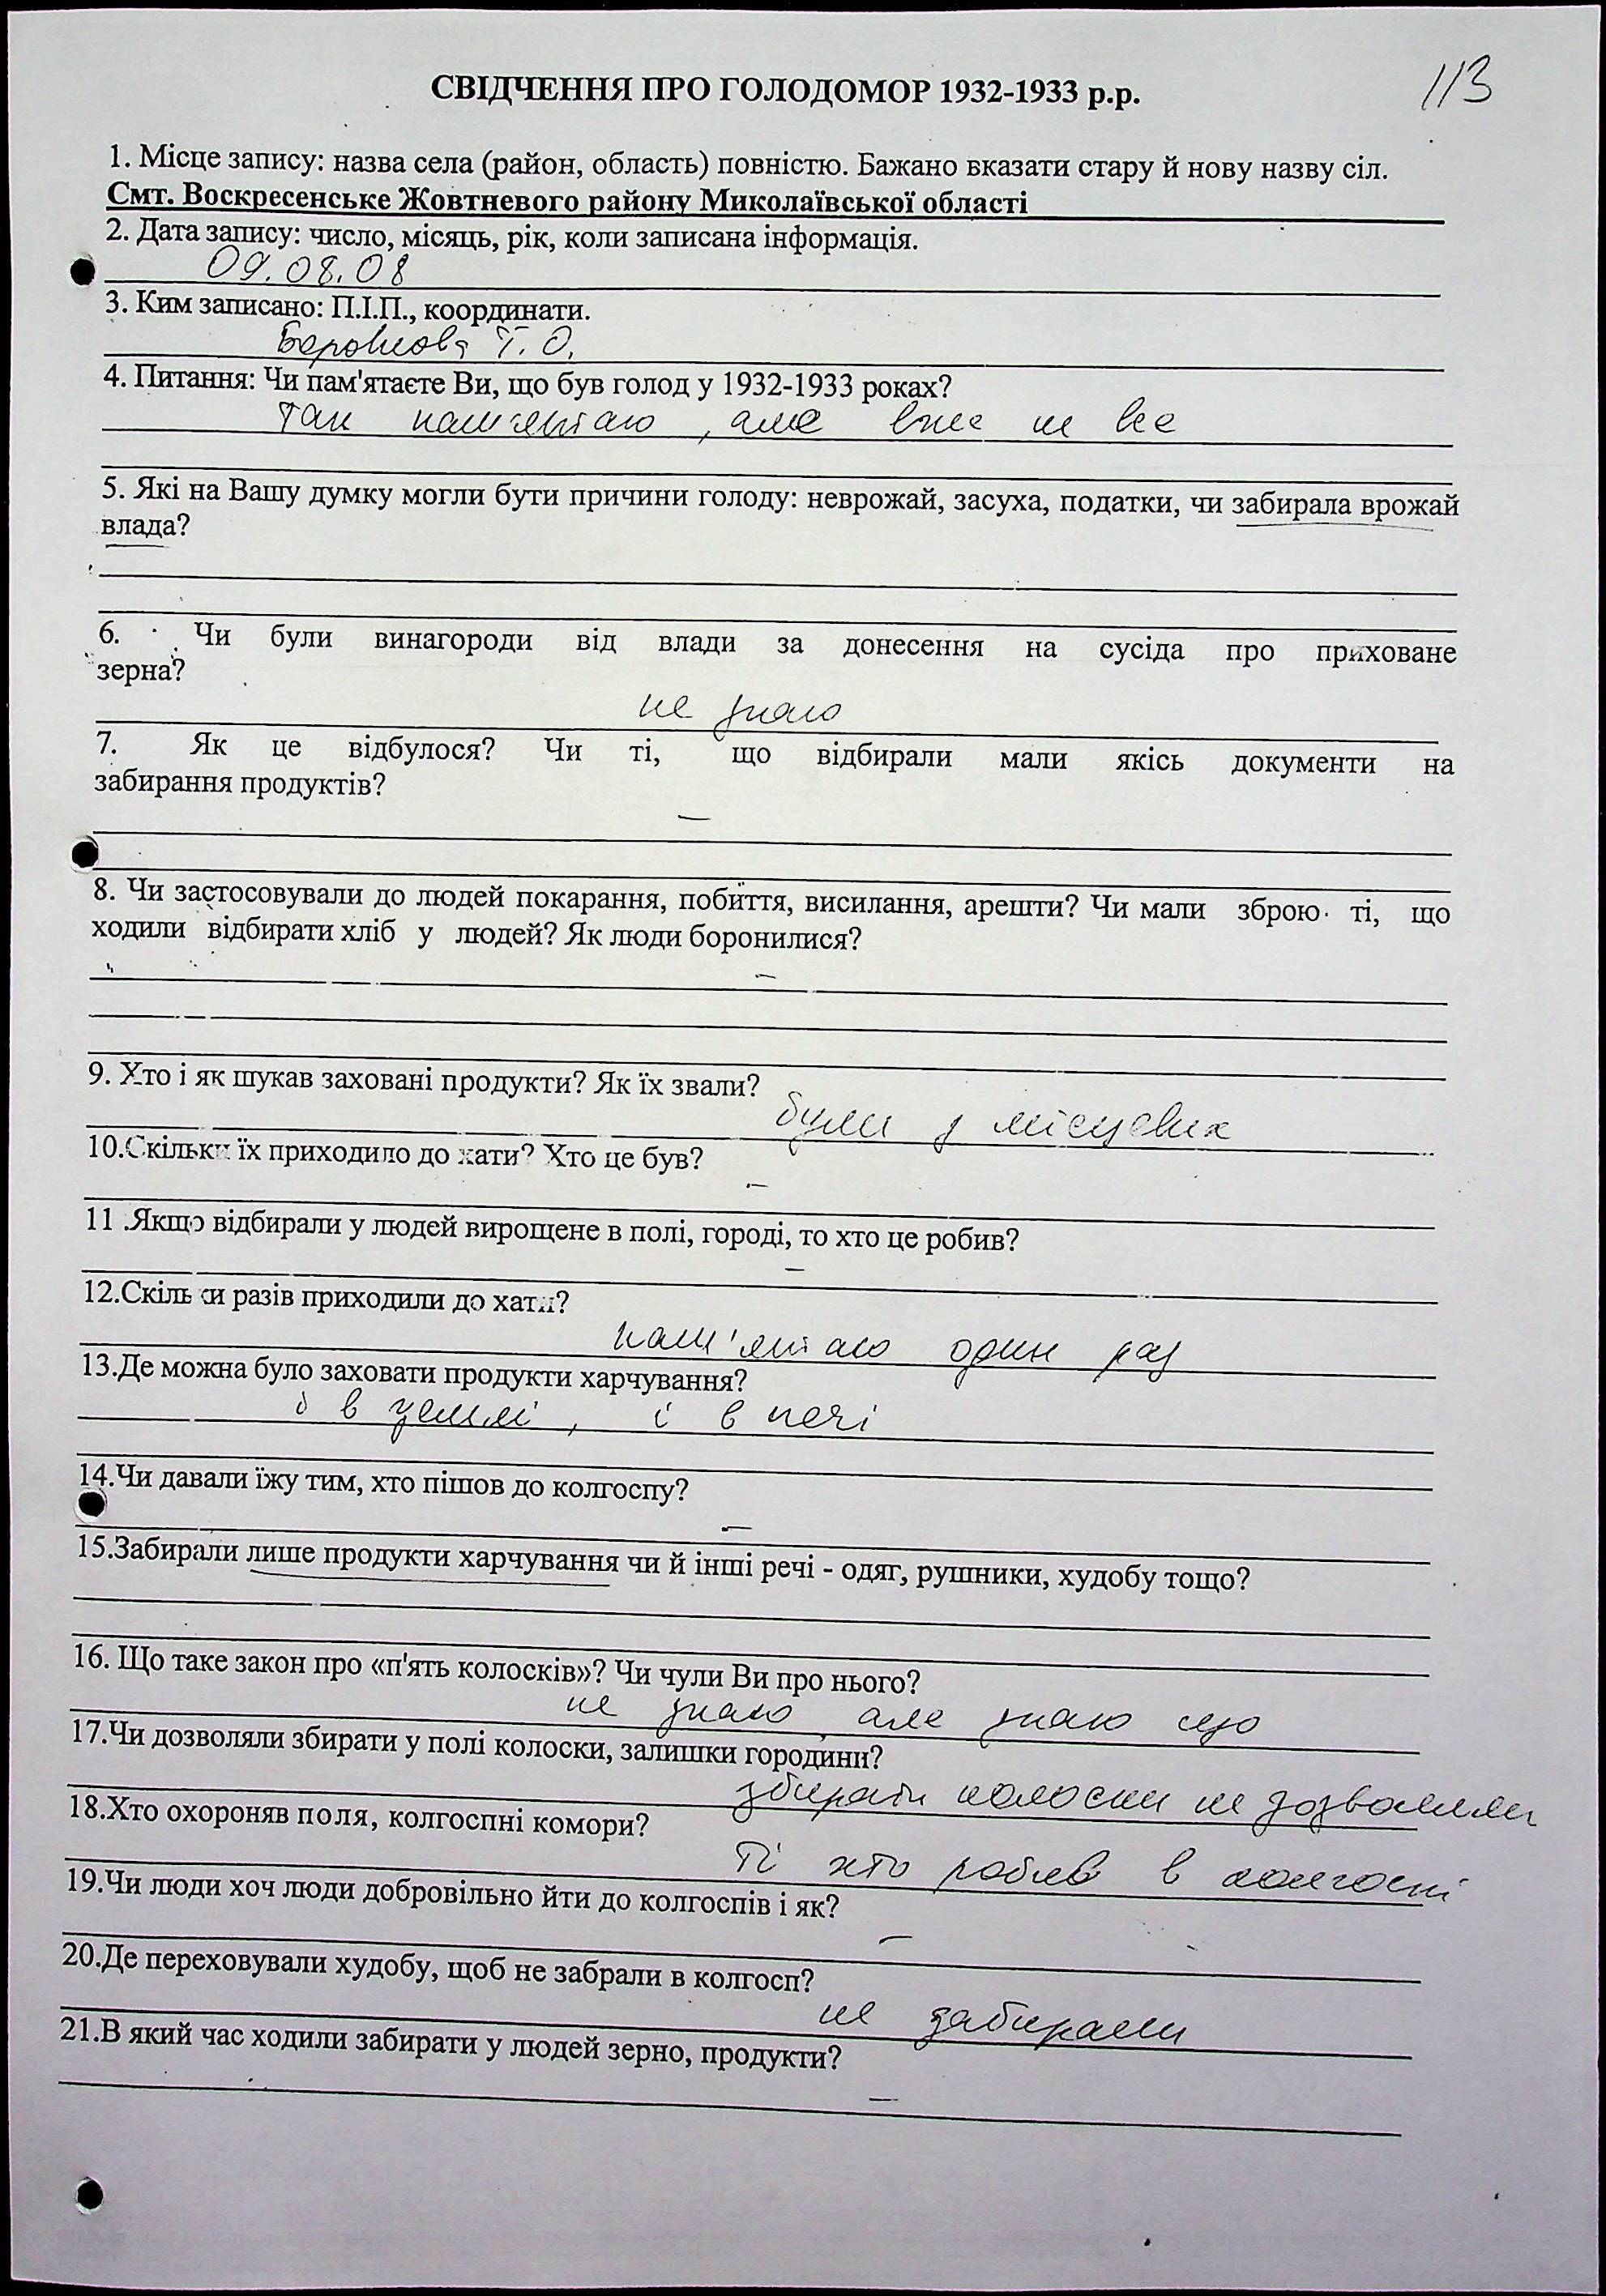 113
СВІДЧЕННЯ ПРО ГОЛОДОМОР 1932-1933 р.р.
1. Місце запису: назва села (район, область) повністю. Бажано вказати стару й нову назву сіл.
Смт. Воскресенське Жовтневого району Миколаївської області
2. Дата запису: число, місяць, рік, коли записана інформація.
09.08.08
3. Ким записано: П.І.П., координати.
Т. О.
4. Питання: Чи пам'ятаєте Ви, що був голод у 1932-1933 роках?
так пам'ятаю, але вже не все
5. Які на Вашу думку могли бути причини голоду: неврожай, засуха, податки, чи забирала врожай
влада?
6. Чи були винагороди від влади за донесення на сусіда про приховане
зерна?
не знаю
7. Як це відбулося? Чи ті, що відбирали мали якісь документи на
забирання продуктів?
–
8. Чи застосовували до людей покарання, побиття, висилання, арешти? Чи мали зброю ті, що
ходили відбирати хліб у людей? Як люди боронилися?
–
9. Хто і як шукав заховані продукти? Як їх звали?
були з місцевих
10.Скільки їх приходило до хати? Хто це був?
–
11 .Якщо відбирали у людей вирощене в полі, городі, то хто це робив?
–
12.Скільки разів приходили до хати?
пам'ятаю один раз
13.Де можна було заховати продукти харчування?
і в землі, і в печі
14.Чи давали їжу тим, хто пішов до колгоспу?
–
15.Забирали лише продукти харчування чи й інші речі - одяг, рушники, худобу тощо?
16. Що таке закон про «п'ять колосків»? Чи чули Ви про нього?
не знаю, але знаю що
17.Чи дозволяли збирати у полі колоски, залишки городини?
збирати колоски не дозволяли
18.Хто охороняв поля, колгоспні комори?
Ті хто робив в колгоспі
19.Чи люди хоч люди добровільно йти до колгоспів і як?
–
20.Де переховували худобу, щоб не забрали в колгосп?
не забирали
21.В який час ходили забирати у людей зерно, продукти?
–